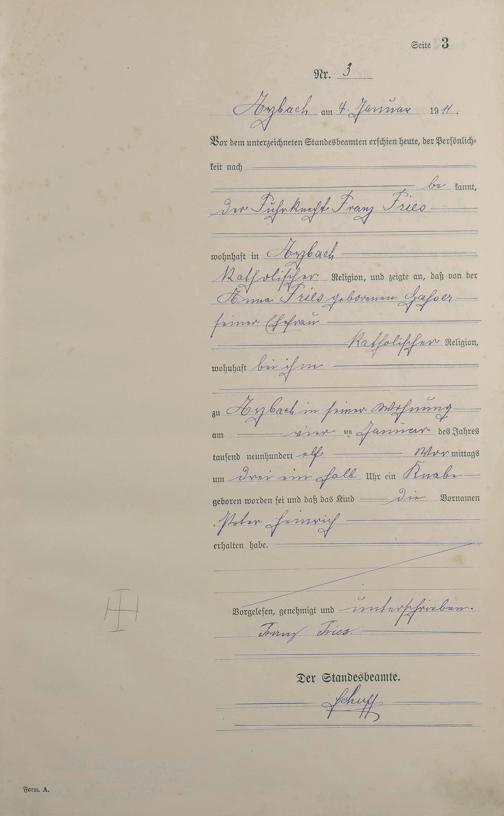 Seite 3
Nr. 3
Asbach am 4. Januar 1911.
Vor dem unterzeichneten Standesbeamten erschien heute, der Persönlich-
keit nach
be kannt,
der Fuhrknecht Franz Fries
wohnhaft in Asbach
katholischer Religion, und zeigte an, daß von der
Anna Fries geborenen
seiner Ehefrau
katholischer Religion,
wohnhaft bei ihm
zu Asbach in seiner Wohnung
am vier ten Januar des Jahres
tausend neunhundert elf Vor mittags
um drei ein halb Uhr ein Knabe
geboren worden sei und daß das Kind die Vornamen
Peter Heinrich
erhalten habe.
Vorgelesen, genehmigt und unterschrieben.
Franz Fries
Der Standesbeamte.
Form. A.